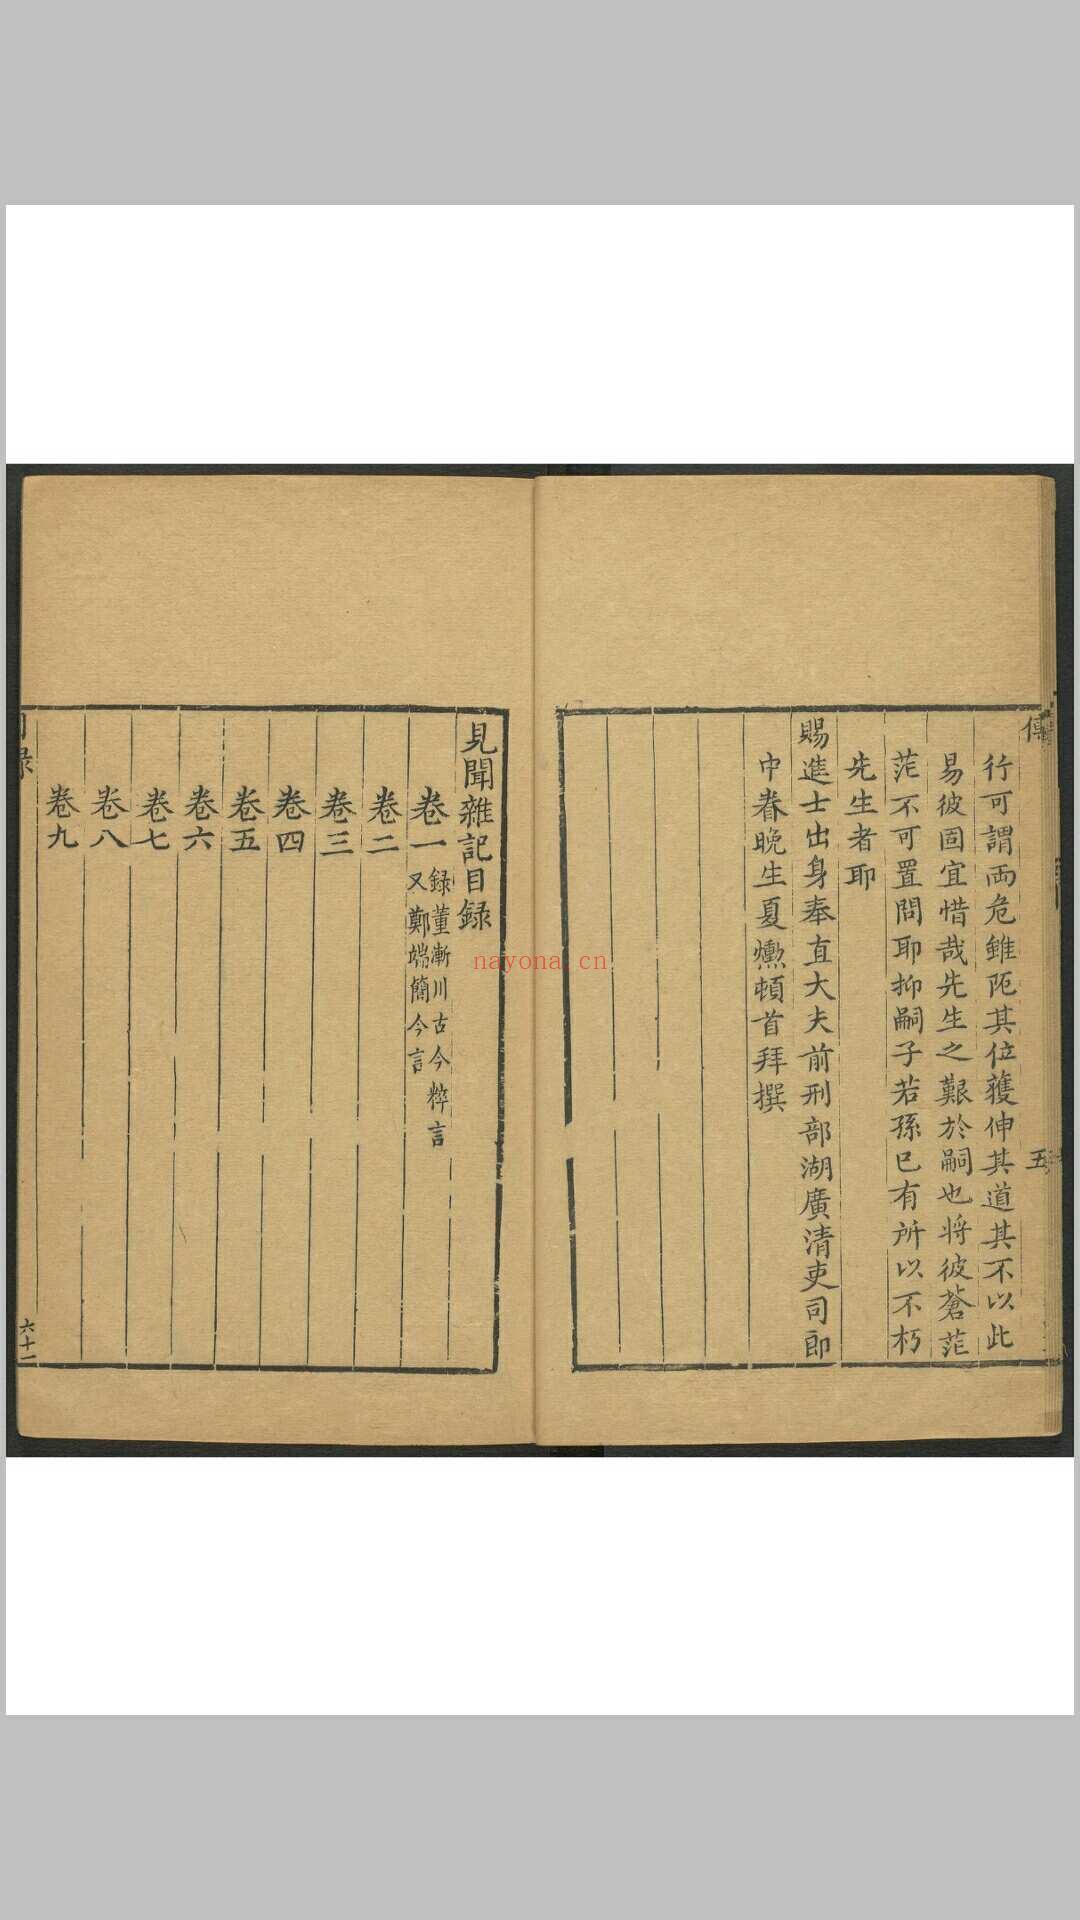 傳
五
行可謂兩危雖阨其位獲伸其道其不以此
易彼固宜惜哉先生之艱於嗣也將彼蒼茫
茫不可置問耶抑嗣子若孫已有所以不朽
先生者耶
賜進士出身奉直大夫前刑部湖廣清吏司郎
中眷晚生夏爌頓首拜撰
見聞雜記目録
卷一
録董漸川古今粹言
又鄭端簡今言
卷二
卷三
卷四
卷五
卷六
卷七
卷八
卷九
目録
六十一
nayona.cn